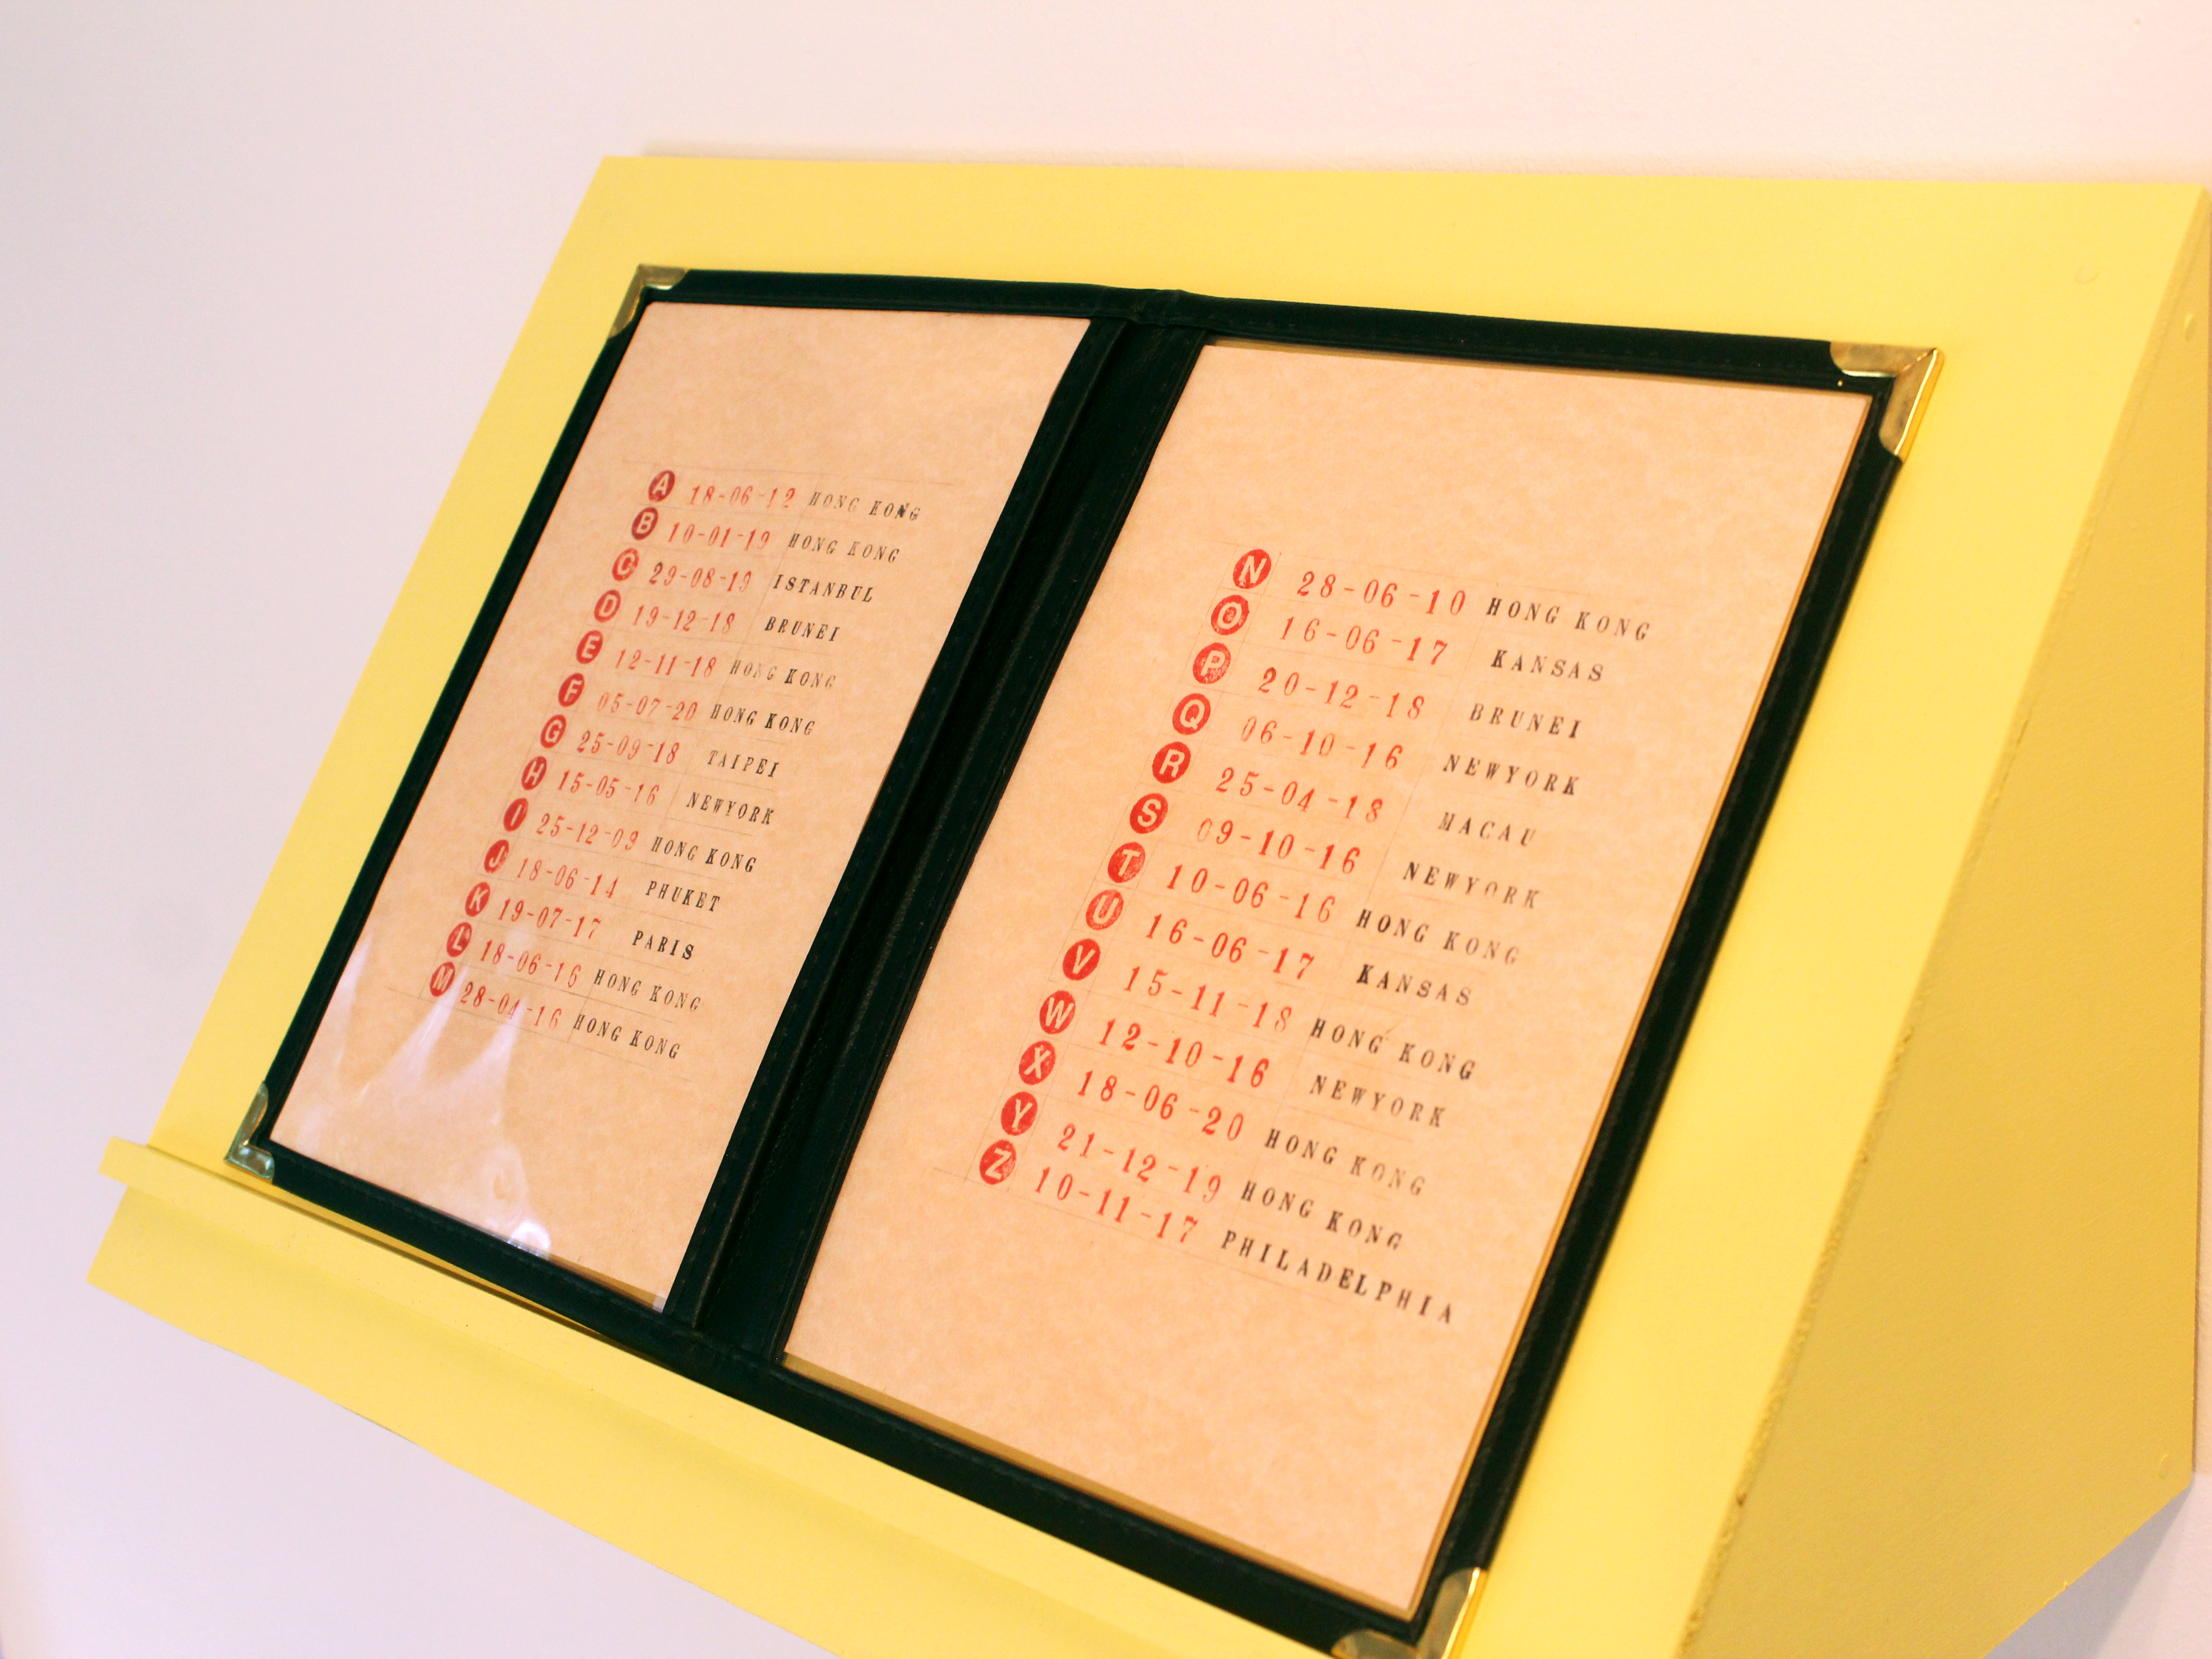 A 18-06-12 HONG KONG
B 10-01-19 HONG KONG
C 29-08-19 ISTANBUL
D 19-12-18 BRUNEI
E 12-11-18 HONG KONG
F 05-07-20 HONG KONG
G 25-09-18 TAIPEI
H 15-05-16 NEWYORK
I 25-12-09 HONG KONG
J 18-06-14 PHUKET
K 19-07-17 PARIS
L 18-06-16 HONG KONG
M 28-04-16 HONG KONG
N 28-06-10 HONG KONG
O 16-06-17 KANSAS
P 20-12-18 BRUNEI
Q 06-10-16 NEWYORK
R 25-04-18 MACAU
S 09-10-16 NEWYORK
T 10-06-16 HONG KONG
U 16-06-17 KANSAS
V 15-11-18 HONG KONG
W 12-10-16 NEWYORK
X 18-06-20 HONG KONG
Y 21-12-19 HONG KONG
Z 10-11-17 PHILADELPHIA